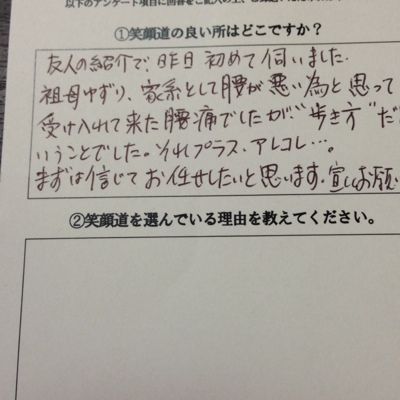 以下のアンケート項目に回答をご記入の上、
①笑顔道の良い所はどこですか？
友人の紹介で、昨日初めて伺いました.
祖母ゆずり、家系として腰が悪い為と思って
受け入れて来た腰痛でしたが、"歩き方"だ
いうことでした。それプラス、アレコレ…。
まずは信じてお任せしたいと思います. 宜しくお願い
②笑顔道を選んでいる理由を教えてください。